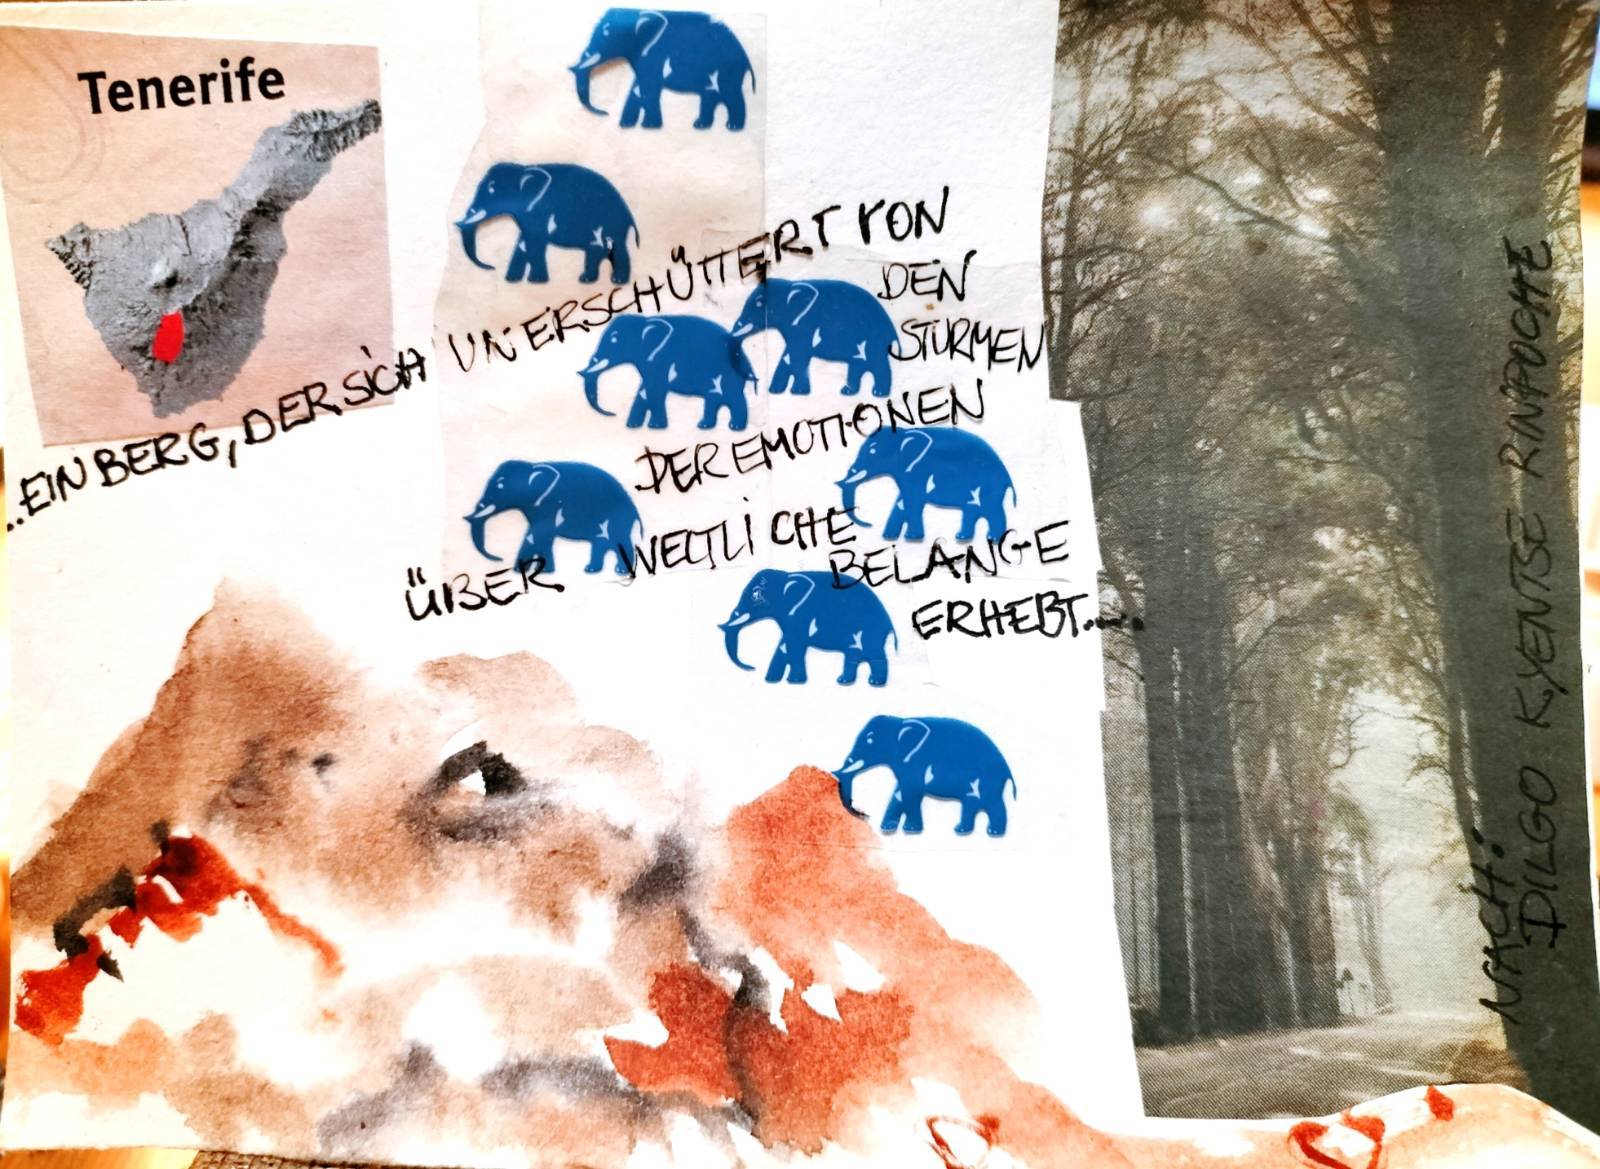 Tenerife
..EIN BERG, DER SICH UNERSCHÜTTERT VON
DEN
STÜRMEN
DER EMOTIONEN
ÜBER WELTLICHE
BELANGE
ERHEBT.....
NACH:
DILGO KYENTSE RINPOCHE